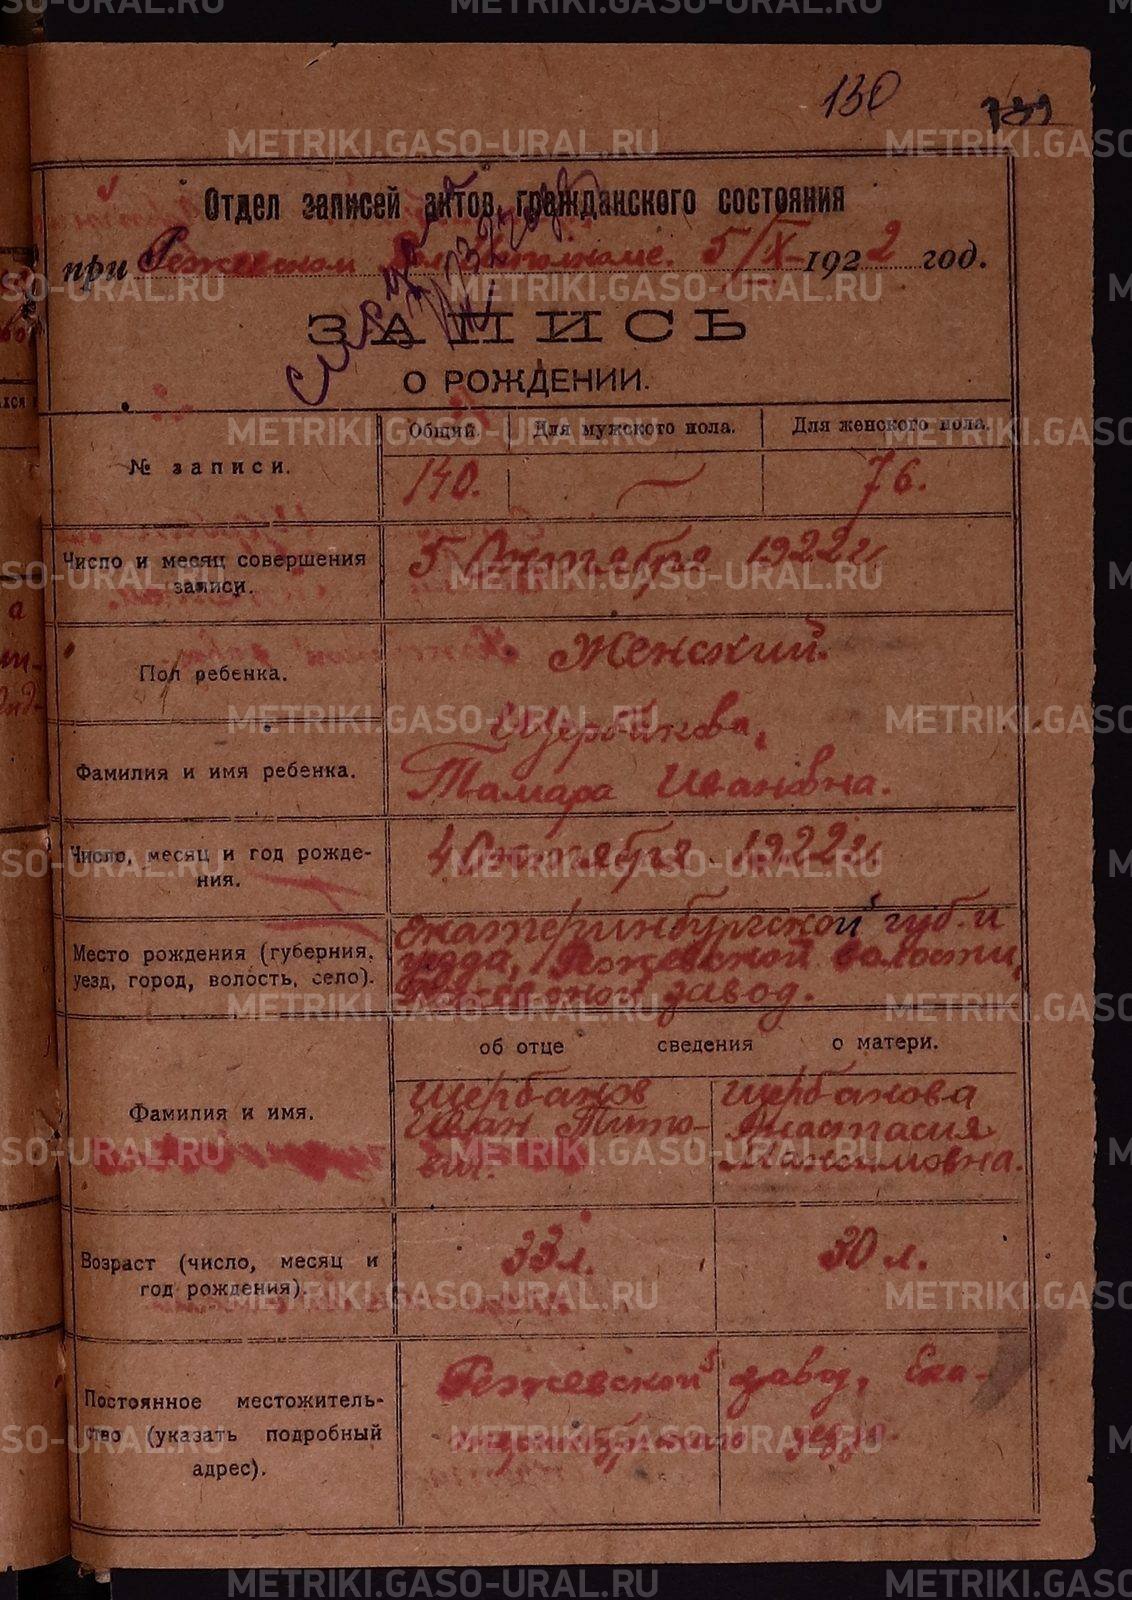 130
739
Отдел записей актов гражданского состояния
при Режевском Волисполкоме. 5/X-1922 год.
ЗАПИСЬ
О РОЖДЕНИИ.
№ записи.
Общий. Для мужского пола. Для женского пола.
140. — 76.
Число и месяц совершения
записи.
5 Октября 1922 г.
Пол ребенка.
Женский.
Фамилия и имя ребенка.
Щербакова,
Тамара Ивановна.
Число, месяц и год рожде-
ния.
4 Октября 1922 г.
Место рождения (губерния,
уезд, город, волость, село).
Екатеринбургской губ. и
уезда, Режевской волости,
Режевской завод.
об отце сведения о матери.
Фамилия и имя.
Щербаков
Иван Тито-
вич.
Щербакова
Анастасия
Максимовна.
Возраст (число, месяц и
год рождения).
33 л.
30 л.
Постоянное местожитель-
ство (указать подробный
адрес).
Режевской завод, Ека-
теринбургского уезда.
METRIKI.GASO-URAL.RU